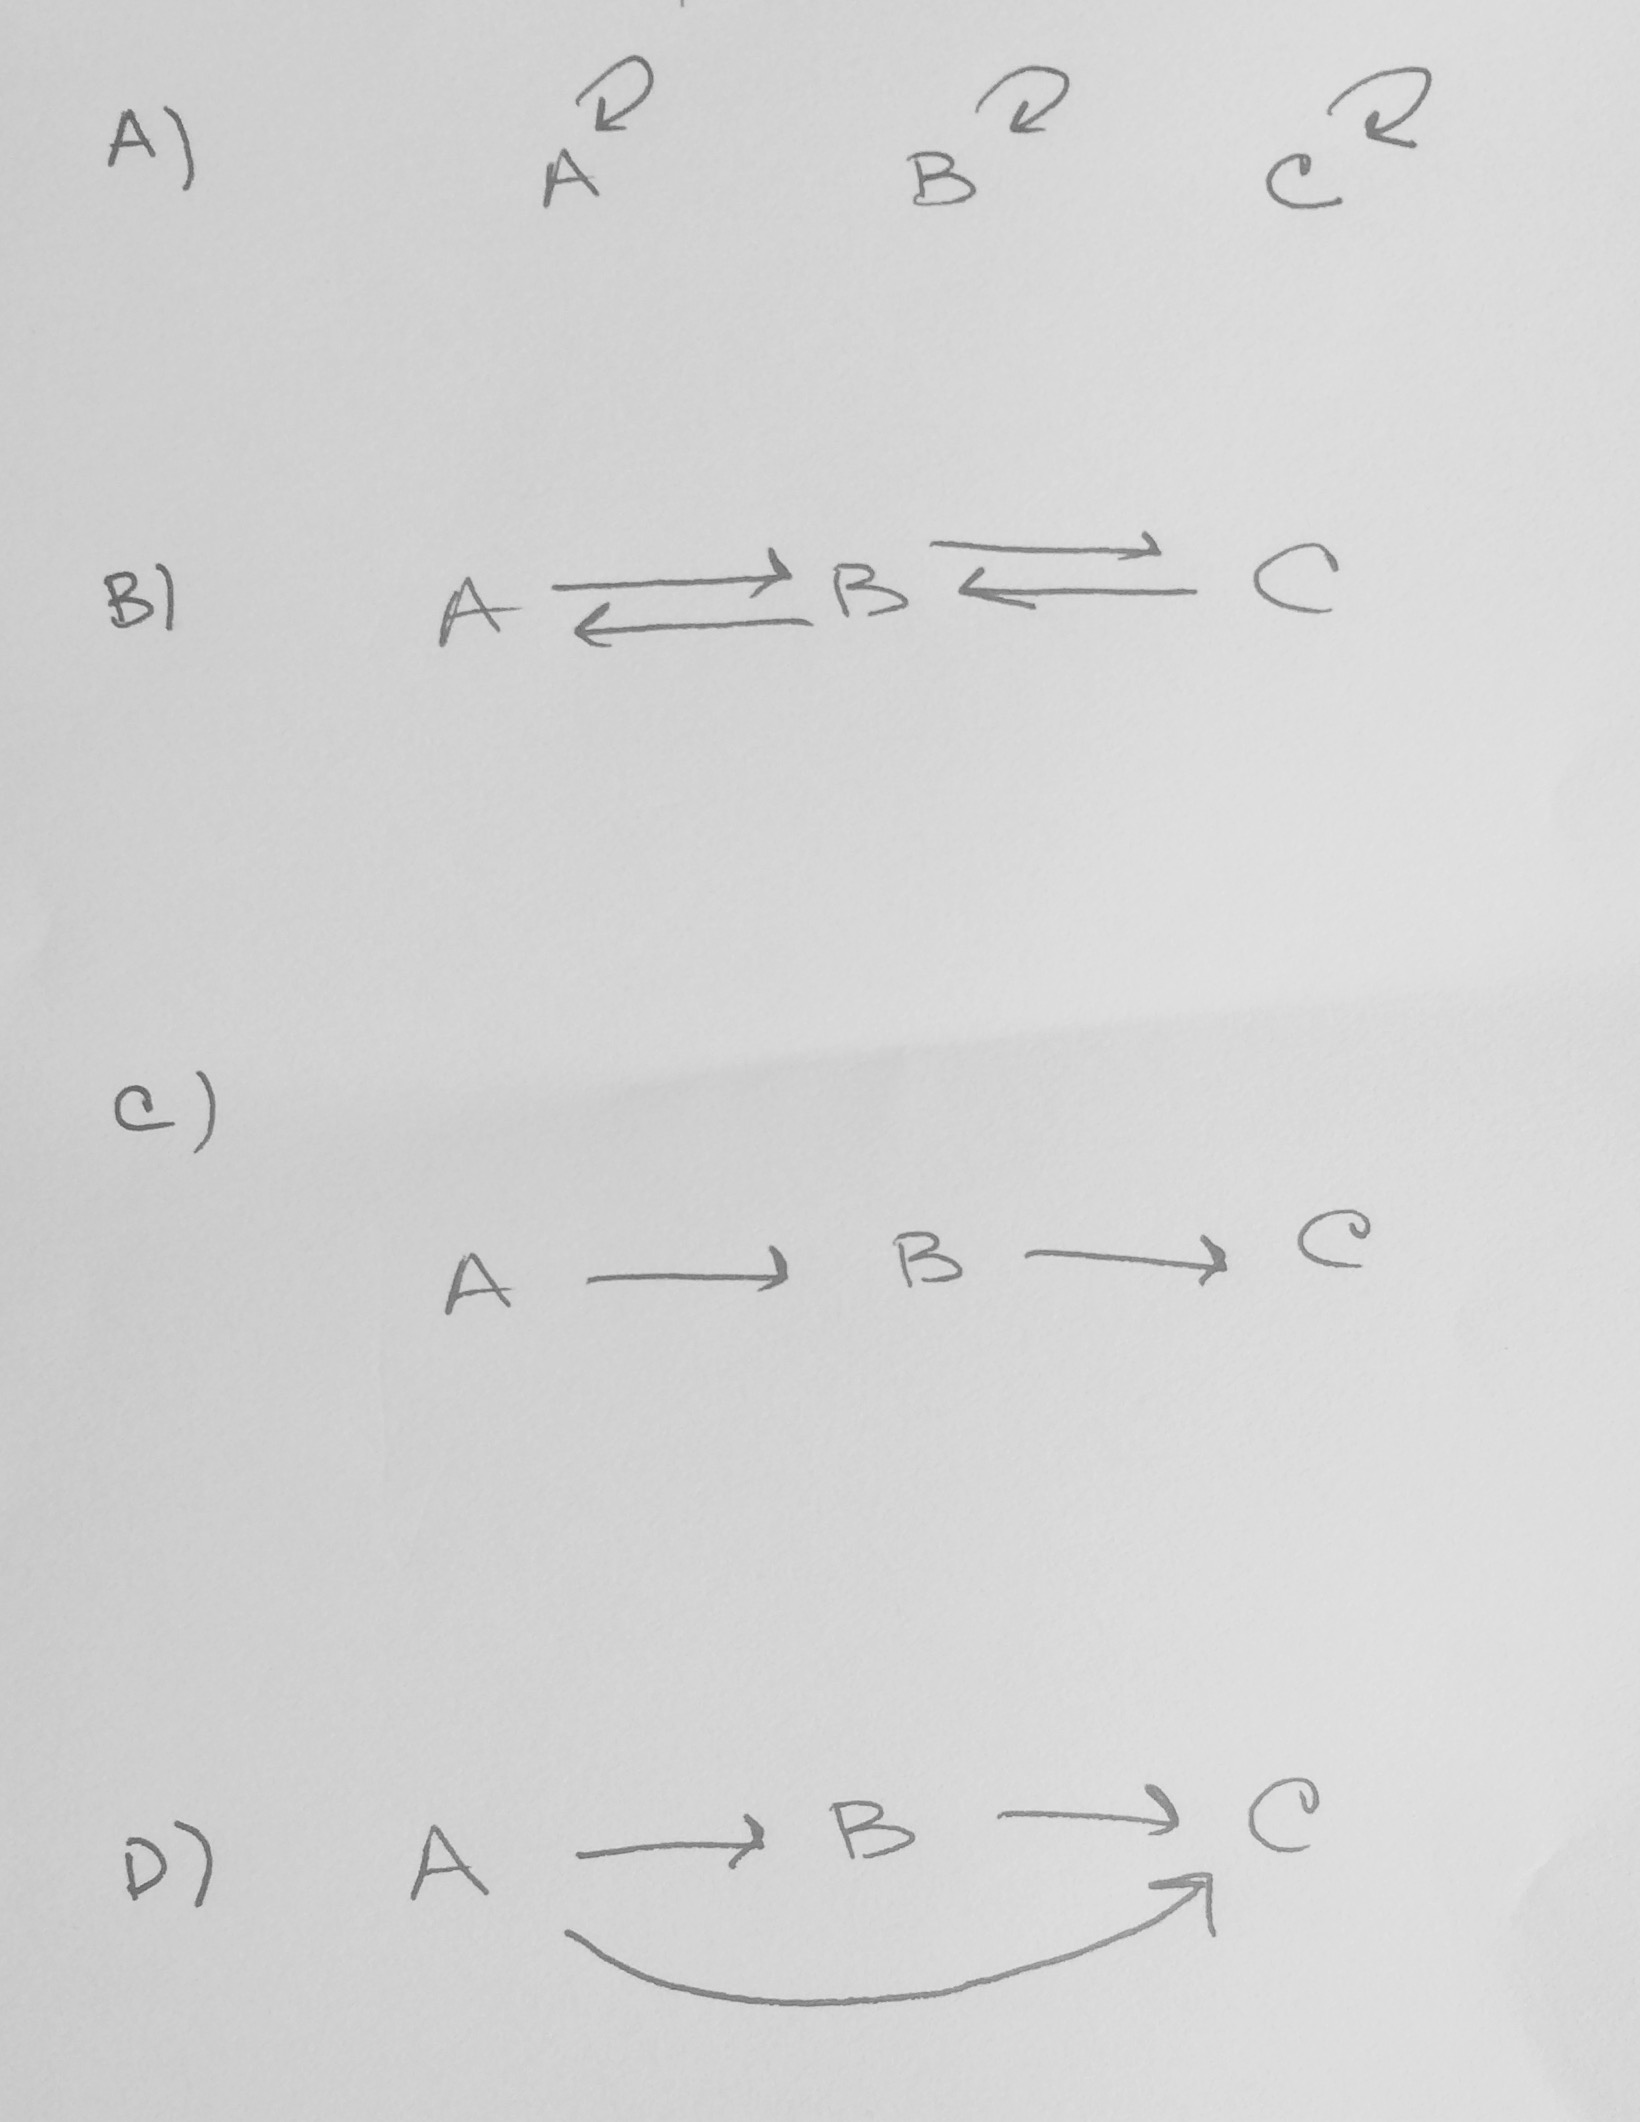 A) A B C
B) A → B → C
← ←
C)
A → B → C
D) A → B → C